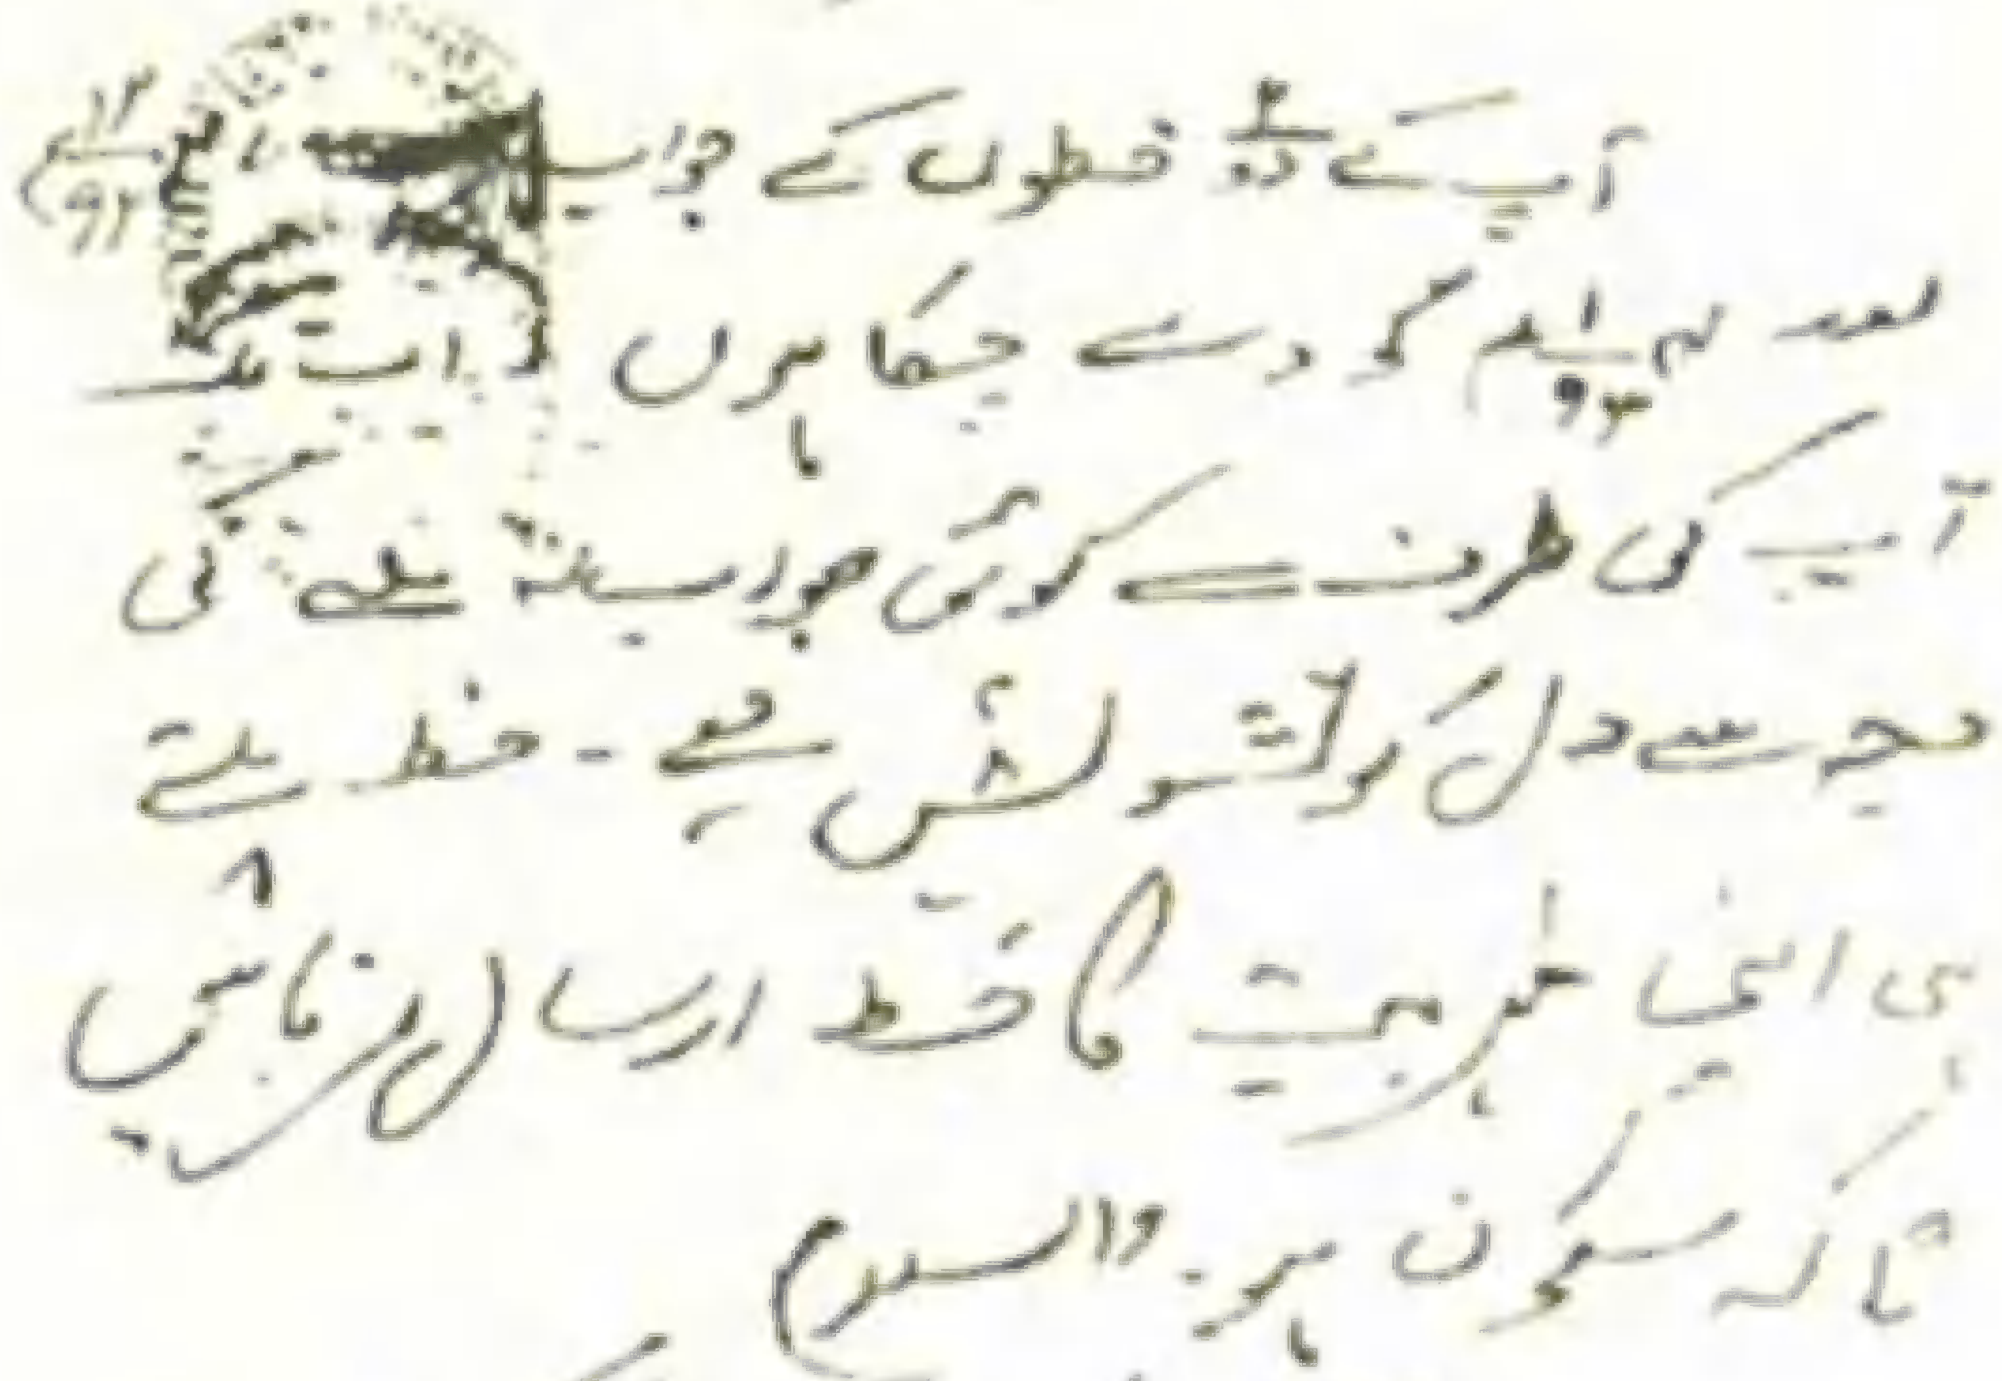 آپ کے دو ۲ خطوں کے جواب ۱۳/۹۲
۱/۹۳ کو دے چکا ہوں اب تک
آپ کی طرف سے کوئی جواب نہ ملنے کی
وجہ سے دل کو تشویش ہے - خط ملتے
ہی اپنی خیریت کا خط ارسال فرمائیں
تاکہ سکون ہو - والسلام